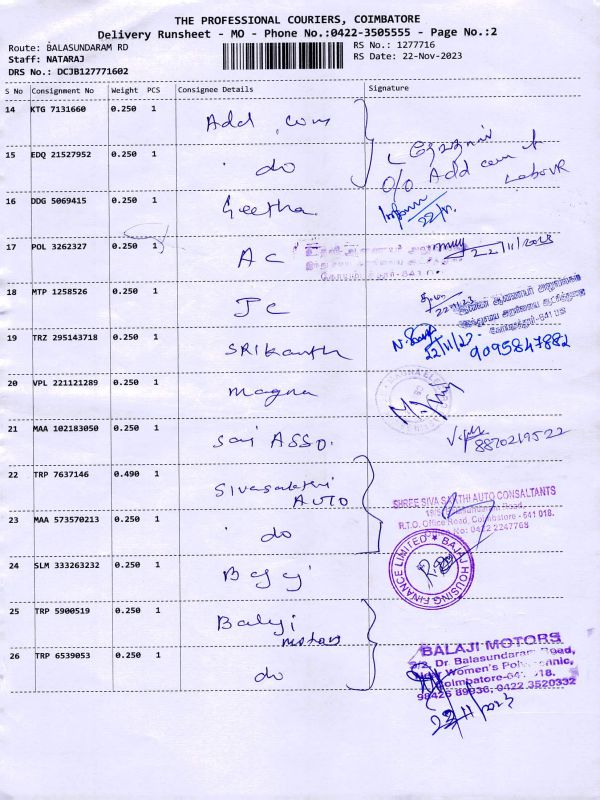 THE PROFESSIONAL COURIERS, COIMBATORE
Delivery Runsheet - MO - Phone No.:0422-3505555 - Page No.:2
Route: BALASUNDARAM RD
RS No.: 1277716
Staff: NATARAJ
RS Date: 22-Nov-2023
DRS No.: DCJB127771602
S No Consignment No Weight PCS Consignee Details Signature
14 KTG 7131660 0.250 1 Add. com
15 EDQ 21527952 0.250 1 do
O/O Add com
Labour
16 DDG 5069415 0.250 1 Geetha
17 POL 3262327 0.250 1 AC 22/11/2023
18 MTP 1258526 0.250 1 JC
19 TRZ 295143718 0.250 1 SRIKanth 22/11/23 9095847882
20 VPL 221121289 0.250 1 magna
21 MAA 102183050 0.250 1 Sai ASSO. 8870219522
22 TRP 7637146 0.490 1 Sivasakthi AUTO
SHREE SIVA SAKTHI AUTO CONSALTANTS
R.T.O. Office Road, Coimbatore - 641 018.
No: 0422 2247768
23 MAA 573570213 0.250 1 do
24 SLM 333263232 0.250 1 Bajaj
BAJAJ HOUSING FINANCE LIMITED
25 TRP 5900519 0.250 1 Balaji motors
26 TRP 6539053 0.250 1 do
BALAJI MOTORS
Dr. Balasundaram Road,
Women's Polytechnic,
Coimbatore-641 018.
98426 89936, 0422 3520332
22/11/2023